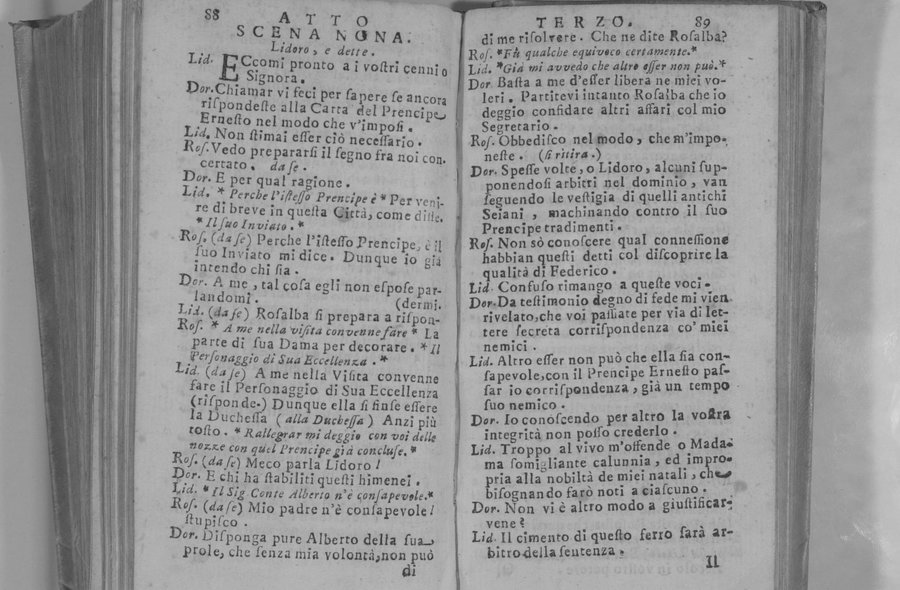 88
ATTO
SCENA NONA.
Lidoro, e dette.
Lid. ECcomi pronto a i vostri cenni o
Signora.
Dor. Chiamar vi feci per sapere se ancora
rispondeste alla Carta del Prencipe
Ernesto nel modo che v'imposi.
Lid. Non stimai esser ciò necessario.
Ros. Vedo prepararsi il segno fra noi con-
certato. da se.
Dor. E per qual ragione.
Lid. * Perche l'istesso Prencipe è * Per veni-
re di breve in questa Città, come disse.
* Il suo Inviato. *
Ros. (da se) Perche l'istesso Prencipe, è il
suo Inviato mi dice. Dunque io già
intendo chi sia.
Dor. A me, tal cosa egli non espose par-
landomi. (dermi.
Lid. (da se) Rosalba si prepara a rispon-
Ros. * A me nella visita convenne fare * La
parte di sua Dama per decorare. * Il
Personaggio di Sua Eccellenza. *
Lid. (da se) A me nella Visita convenne
fare il Personaggio di Sua Eccellenza
(risponde.) Dunque ella si finse essere
la Duchessa (alla Duchessa) Anzi più
tosto. * Rallegrar mi deggio con voi delle
nozze con quel Prencipe già concluse. *
Ros. (da se) Meco parla Lidoro!
Dor. E chi ha stabiliti questi himenei.
Lid. * Il Sig Conte Alberto n'è consapevole. *
Ros. (da se) Mio padre n'è consapevole!
stupisco.
Dor. Disponga pure Alberto della sua
prole, che senza mia volontà, non può
di
TERZO. 89
di me risolvere. Che ne dite Rosalba?
Ros. * Fù qualche equivoco certamente. *
Lid. * Già mi avvedo che altro esser non può. *
Dor. Basta a me d'esser libera ne miei vo-
leri. Partitevi intanto Rosalba che io
deggio confidare altri affari col mio
Segretario.
Ros. Obbedisco nel modo, che m'impo-
neste. (si ritira.)
Dor. Spesse volte, o Lidoro, alcuni sup-
ponendosi arbitri nel dominio, van
seguendo le vestigia di quelli antichi
Seiani, machinando contro il suo
Prencipe tradimenti.
Ros. Non sò conoscere qual connessione
habbian questi detti col discoprire la
qualità di Federico.
Lid. Confuso rimango a queste voci.
Dor. Da testimonio degno di fede mi vien
rivelato, che voi passiate per via di let-
tere secreta corrispondenza co' miei
nemici.
Lid. Altro esser non può che ella sia con-
sapevole, con il Prencipe Ernesto pas-
sar io corrispondenza, già un tempo
suo nemico.
Dor. Io conoscendo per altro la vostra
integrità non posso crederlo.
Lid. Troppo al vivo m'offende o Mada-
ma somigliante calunnia, ed impro-
pria alla nobiltà de miei natali, che
bisognando farò noti a ciascuno.
Dor. Non vi è altro modo a giustificar-
vene?
Lid. Il cimento di questo ferro sarà ar-
bitro della sentenza.
Il